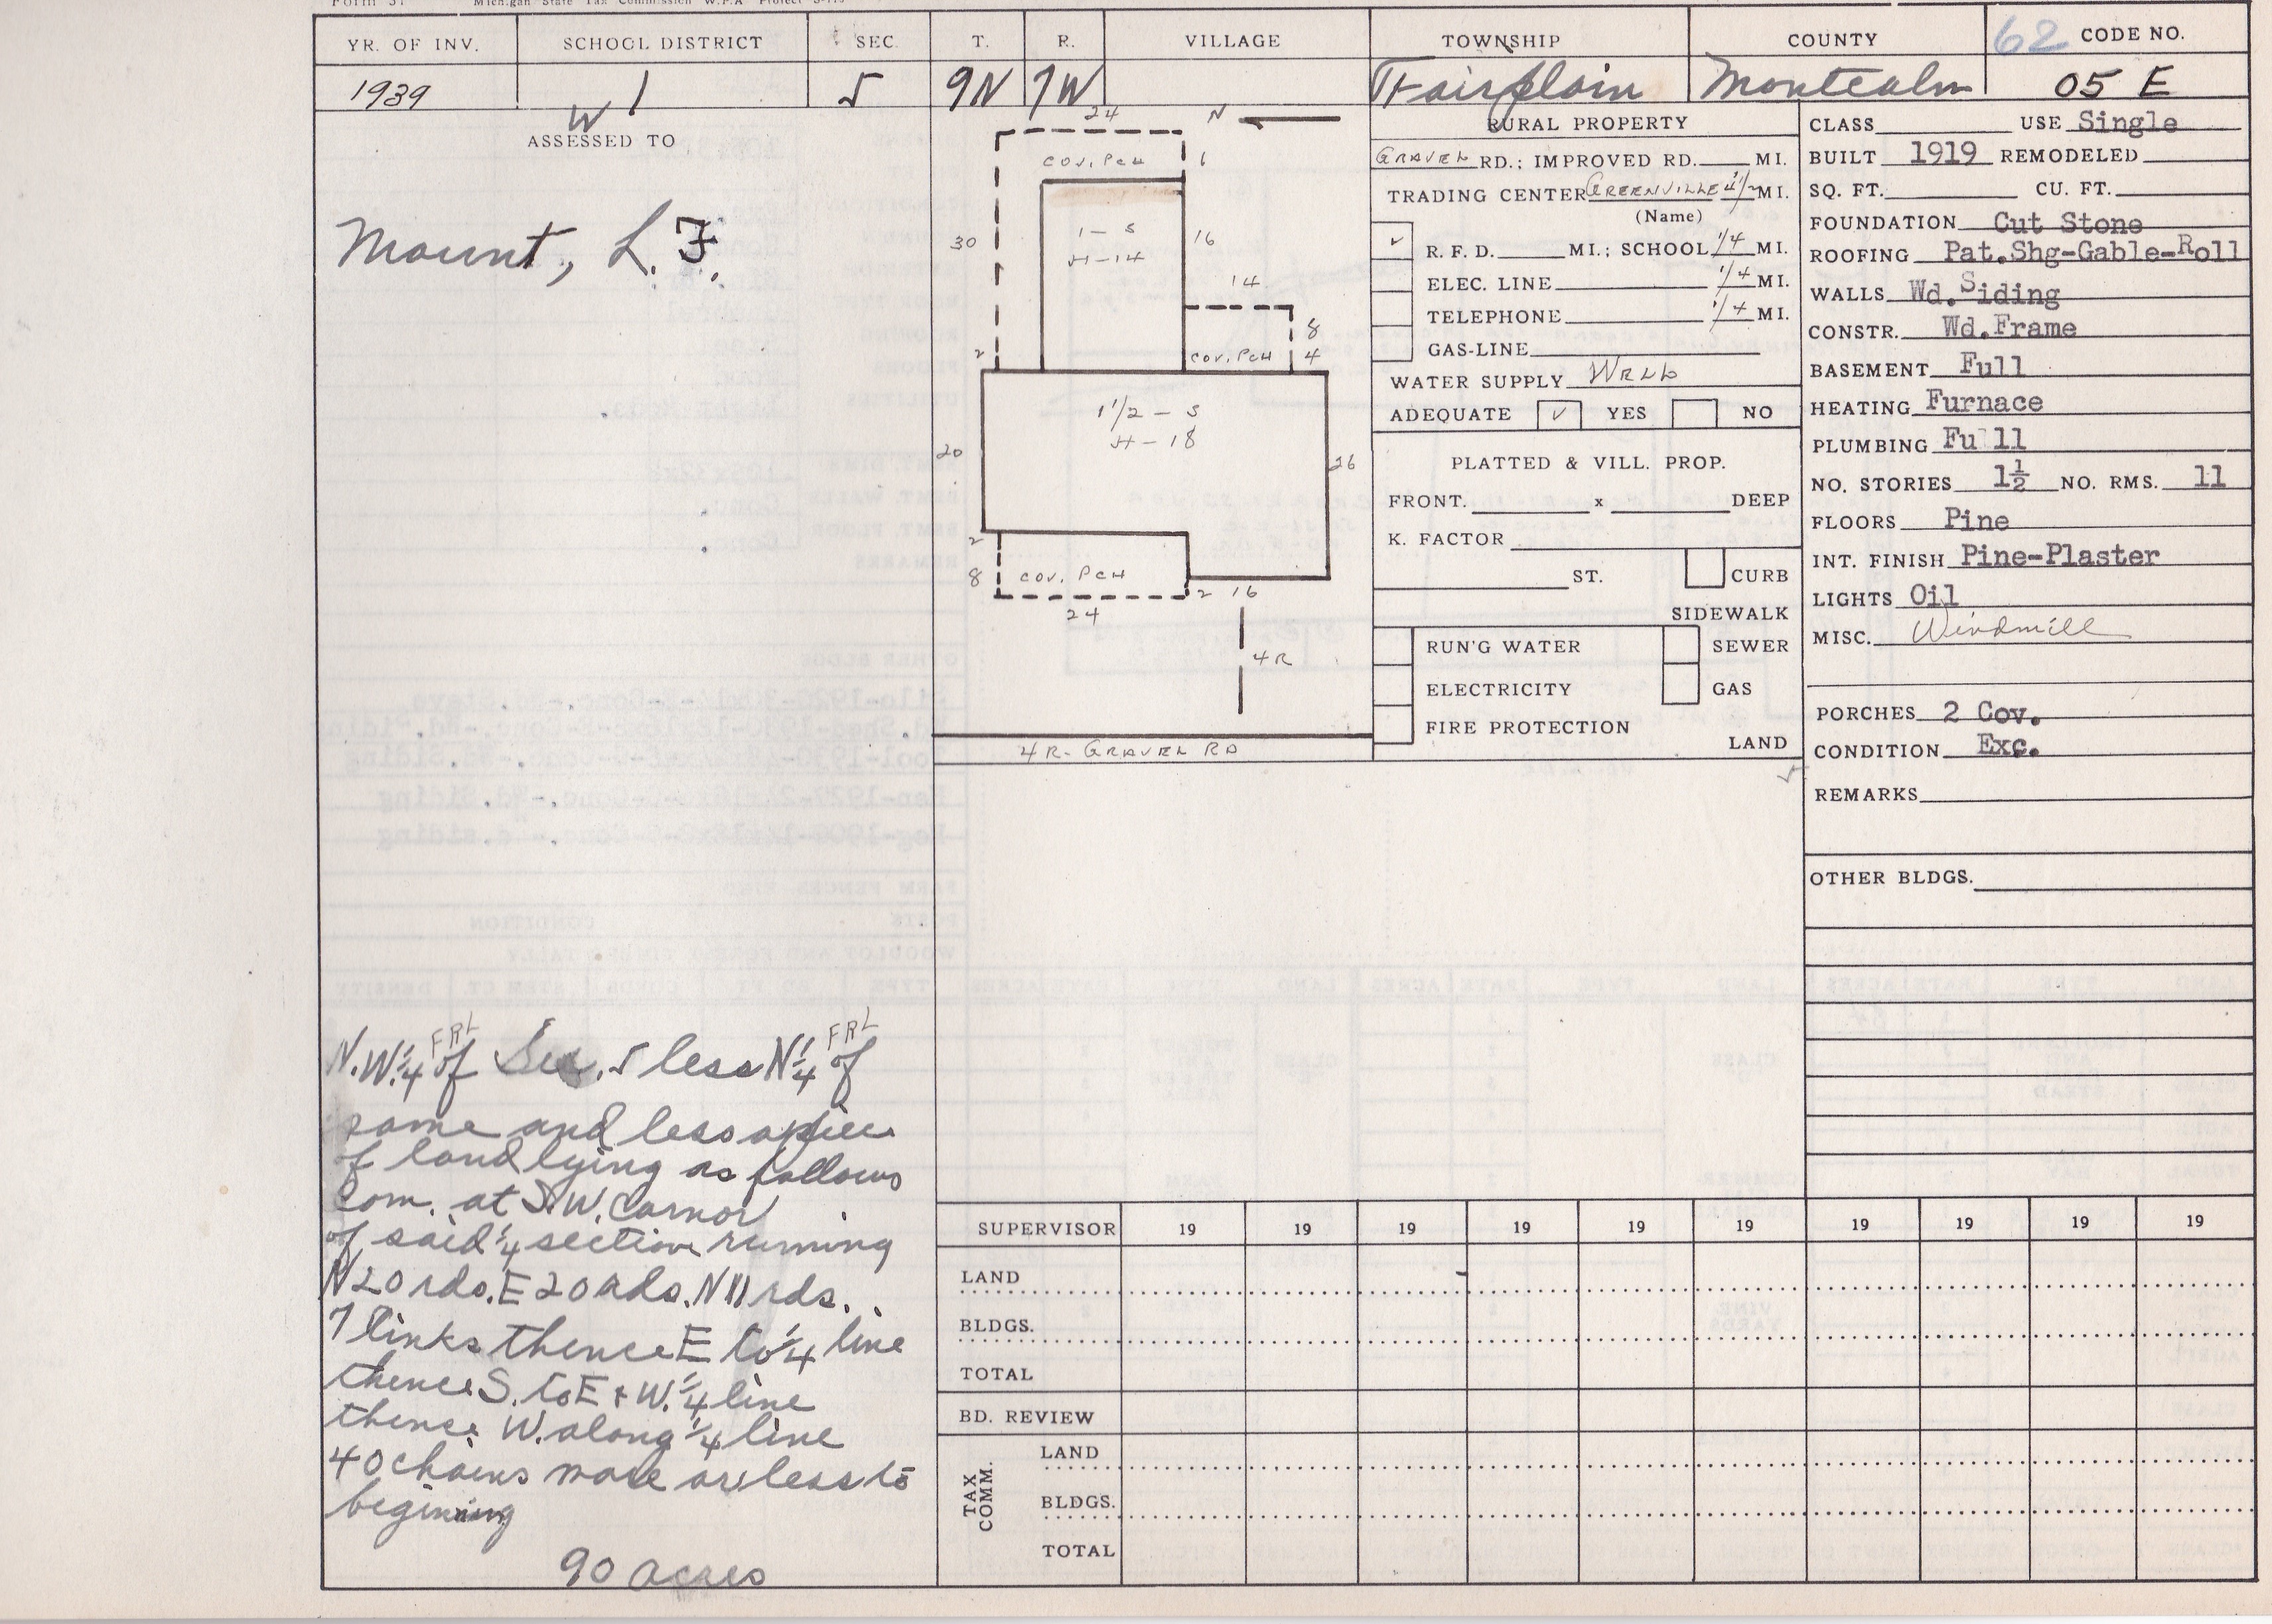 Form 37 Michigan State Tax Commission W.P.A Project S-113
YR. OF INV. SCHOOL DISTRICT SEC. T. R. VILLAGE TOWNSHIP COUNTY 62 CODE NO.
1939 1 5 9N 7W Fairplain Montcalm 05 E
W
ASSESSED TO
Mount, L. F.
N.W. 1/4 FRL of Sec. 5 less N 1/4 FRL of
same and less a piece
of land lying as follows
com. at S.W. Cornor
of said 1/4 section running
N 20 rds. E 20 rds. N 11 rds.
7 links thence E to 1/4 line
thence S. to E + W. 1/4 line
thence W. along 1/4 line
40 chains more or less to
begining
90 acres
24 N
COV. PCH 6
30 1 - S 16
H-14
14
8
2 COV. PCH 4
1 1/2 - S
H-18
20 26
2
8 COV. PCH
2 16
24
4R
4R- GRAVEL RD
RURAL PROPERTY
GRAVEL RD.; IMPROVED RD. MI.
TRADING CENTER GREENVILLE 4 1/2 MI.
(Name)
✓ R. F. D. MI.; SCHOOL 1/4 MI.
ELEC. LINE 1/4 MI.
TELEPHONE 1/4 MI.
GAS-LINE
WATER SUPPLY WELL
ADEQUATE ✓ YES NO
PLATTED & VILL. PROP.
FRONT. x DEEP
K. FACTOR
ST. CURB
SIDEWALK
RUN'G WATER SEWER
ELECTRICITY GAS
FIRE PROTECTION
LAND
CLASS USE Single
BUILT 1919 REMODELED
SQ. FT. CU. FT.
FOUNDATION Cut Stone
ROOFING Pat.Shg-Gable-Roll
WALLS Wd.Siding
CONSTR. Wd.Frame
BASEMENT Full
HEATING Furnace
PLUMBING Full
NO. STORIES 1½ NO. RMS. 11
FLOORS Pine
INT. FINISH Pine-Plaster
LIGHTS Oil
MISC. Windmill
PORCHES 2 Cov.
CONDITION Exc.
REMARKS
OTHER BLDGS.
SUPERVISOR 19 19 19 19 19 19 19 19 19 19
LAND
BLDGS.
TOTAL
BD. REVIEW
TAX COMM.
LAND
BLDGS.
TOTAL